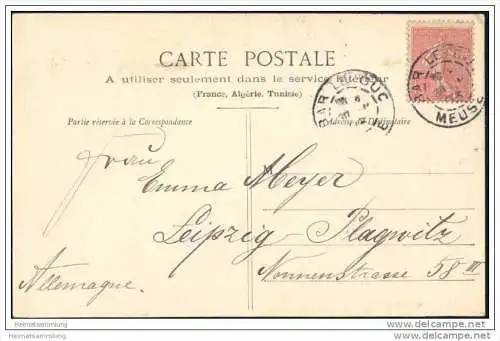 CARTE POSTALE
A utiliser seulement dans le service intérieur
(France, Algérie, Tunisie)
BAR LE DUC
BAR LE DUC
MEUSE
Partie réservée à la Correspondance
Adresse du Destinataire
Frau
Emma Meyer
Leipzig-Plagwitz
Nonnenstrasse 58 III
Allemagne.
Heimatsammlung
Heimatsammlung
www.heimatsammlung.de